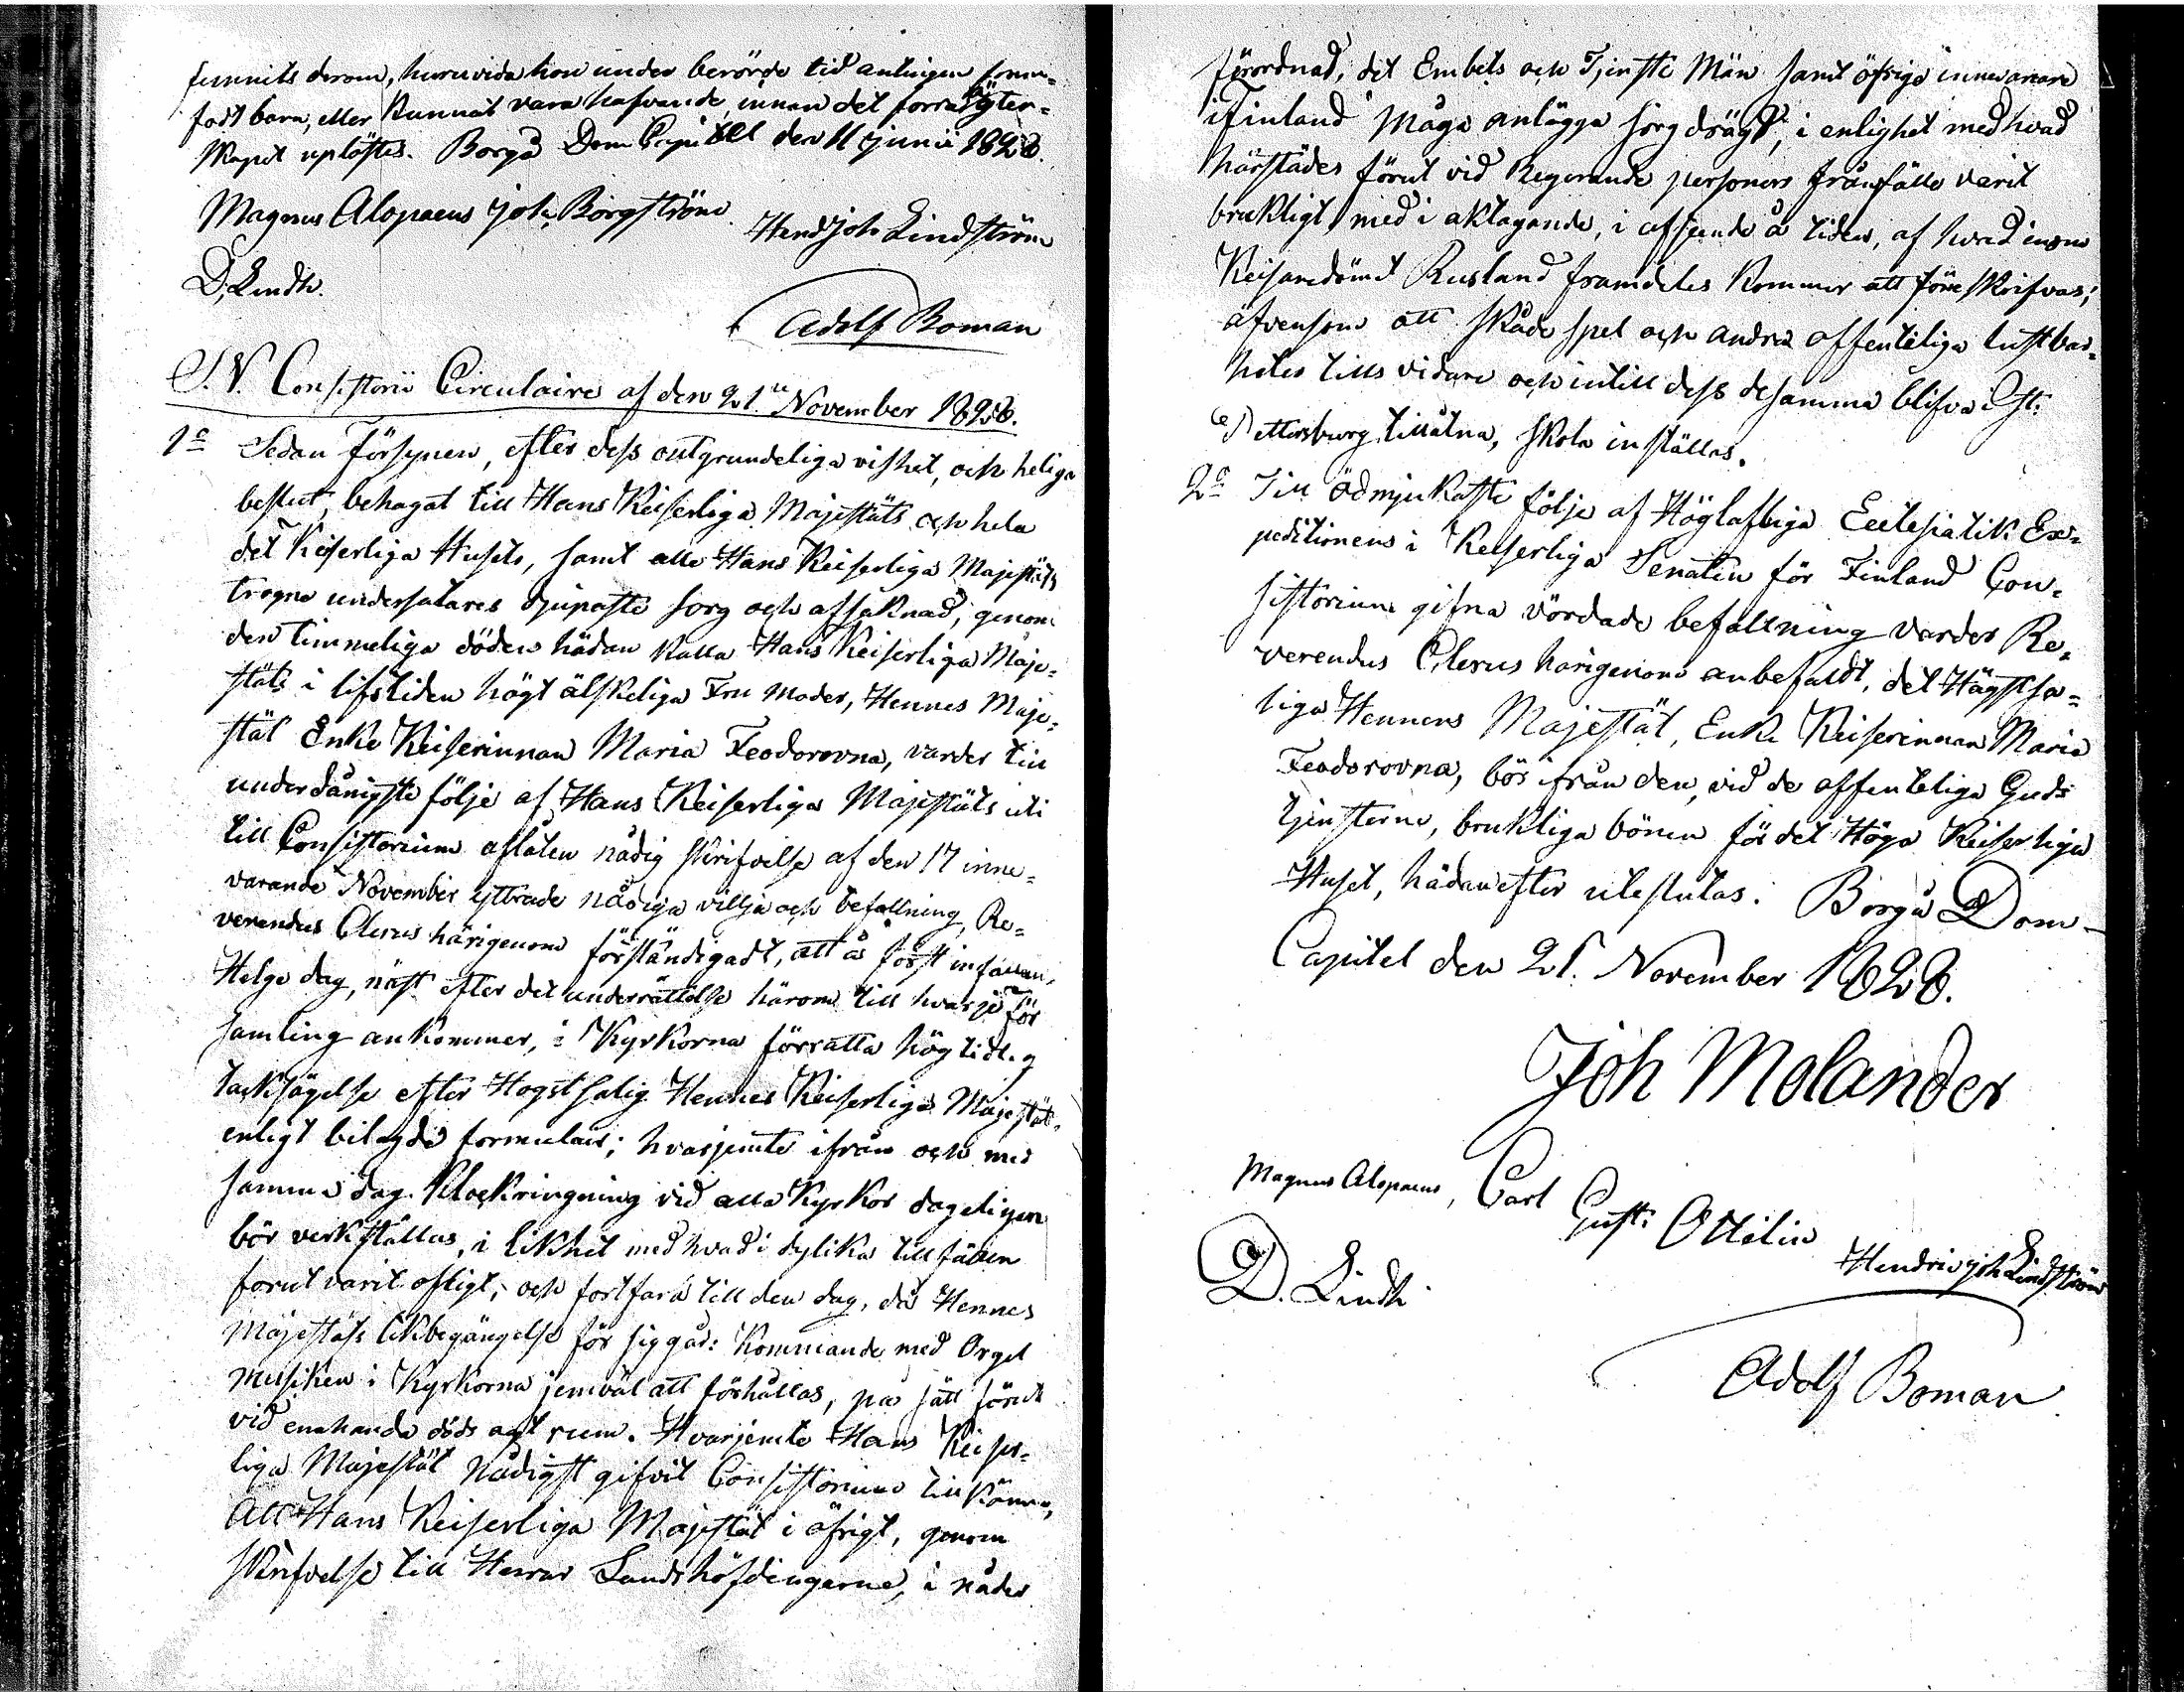 funnits derom, huruvida hon under berörde tid antingen fram-
födt barn, eller kunnat vara hafvande, innan det förra ägten-
skapet uplöstes. Borgå Dom Capitel den 11 Junii 1828.
Magnus Alopaeus Joh. Borgström
Hend Joh Lindström
D. Lindh.
Adolf Boman
S. V. Consistorii Circulaire af den 21ne November 1828.
1o Sedan Försynen, efter dess outgrundeliga vishet, och heliga
beslut, behagat till Hans Keiserliga Majestäts och hela
det Keiserliga Husets, samt alla Hans Keiserliga Majestäts
trogna undersåtares djupaste sorg och afsaknad, genom
den timmeliga döden hädan kalla Hans Keiserliga Maje-
stäts i lifstiden högt älskeliga Fru Moder, Hennes Maje-
stät Enke Keiserinnan Maria Feodorovna, varder till
underdånigste följe af Hans Keiserliga Majestäts uti
till Consistorium aflåten nådig skrifvelse af den 17 inne-
varande November yttrade nådiga villja och befallning, Re-
verendus Clerus härigenom förständigadt, att å först infallan,
Helge dag, näst efter det underrättelse härom till hvarje För
samling ankommer, i Kyrkorna förrätta högtidlig
tacksägelse efter Högstsalig Hennes Keiserliga Majestät,
enligt bilagde formulair; hvarjemte ifrån och med
samma dag Klockringning vid alla Kyrkor dageligen
bör verkställas, i likhet med hvad i dylika tillfällen
förut varit öfligt, och fortfara till den dag, då Hennes
Majestäts likbegängelse för sig går: Kommande med Orgel
musiken i Kyrkorna jemväl att förhållas, på sätt förut
vid enahanda döds ägt rum. Hvarjemte Hans Keiser-
liga Majestät Nådigst gifvit Consistorium tillkänna,
Att Hans Keiserliga Majestät i öfrigt, genom
skrifvelse till Herrar Landshöfdingarne, i nåder
förordnad, det Embets och Tjenste Män samt öfrige innevånare
i Finland måga anlägga sorgdrägt, i enlighet med hvad
härstädes förut vid Regerande personers frånfälle varit
brukligt med i akttagande, i afseende å tiden, af hvad inom
Keisaredömet Rusland framdeles kommer att föreskrifvas;
äfvensom att skådespel och andra offenteliga lustbar-
heter tills vidare och intill dess desamma blifva i St:
Pettersburg tillåtna, skola inställas.
2o Till ödmjukaste följe af Höglofliga Ecclesiastik Ex-
peditionens i Keiserliga Senaten för Finland Con-
sistorium gifna vördade befallning varder Re-
verendus Clerus härigenom anbefaldt, det Högstsa-
liga Hennens Majestät, Enke Keiserinnan Maria
Feodorovna, bör ifrån den, vid de offenteliga Guds
tjensterne, brukliga bönen för det Höga Keiserliga
Huset, hädanefter uteslutas. Borgå Dom-
Capitel den 21. November 1828.
Joh Molander
Magnus Alopaeus, Carl Gust: Ottelin
Hendric Joh Lindström
D. Lindh
Adolf Boman